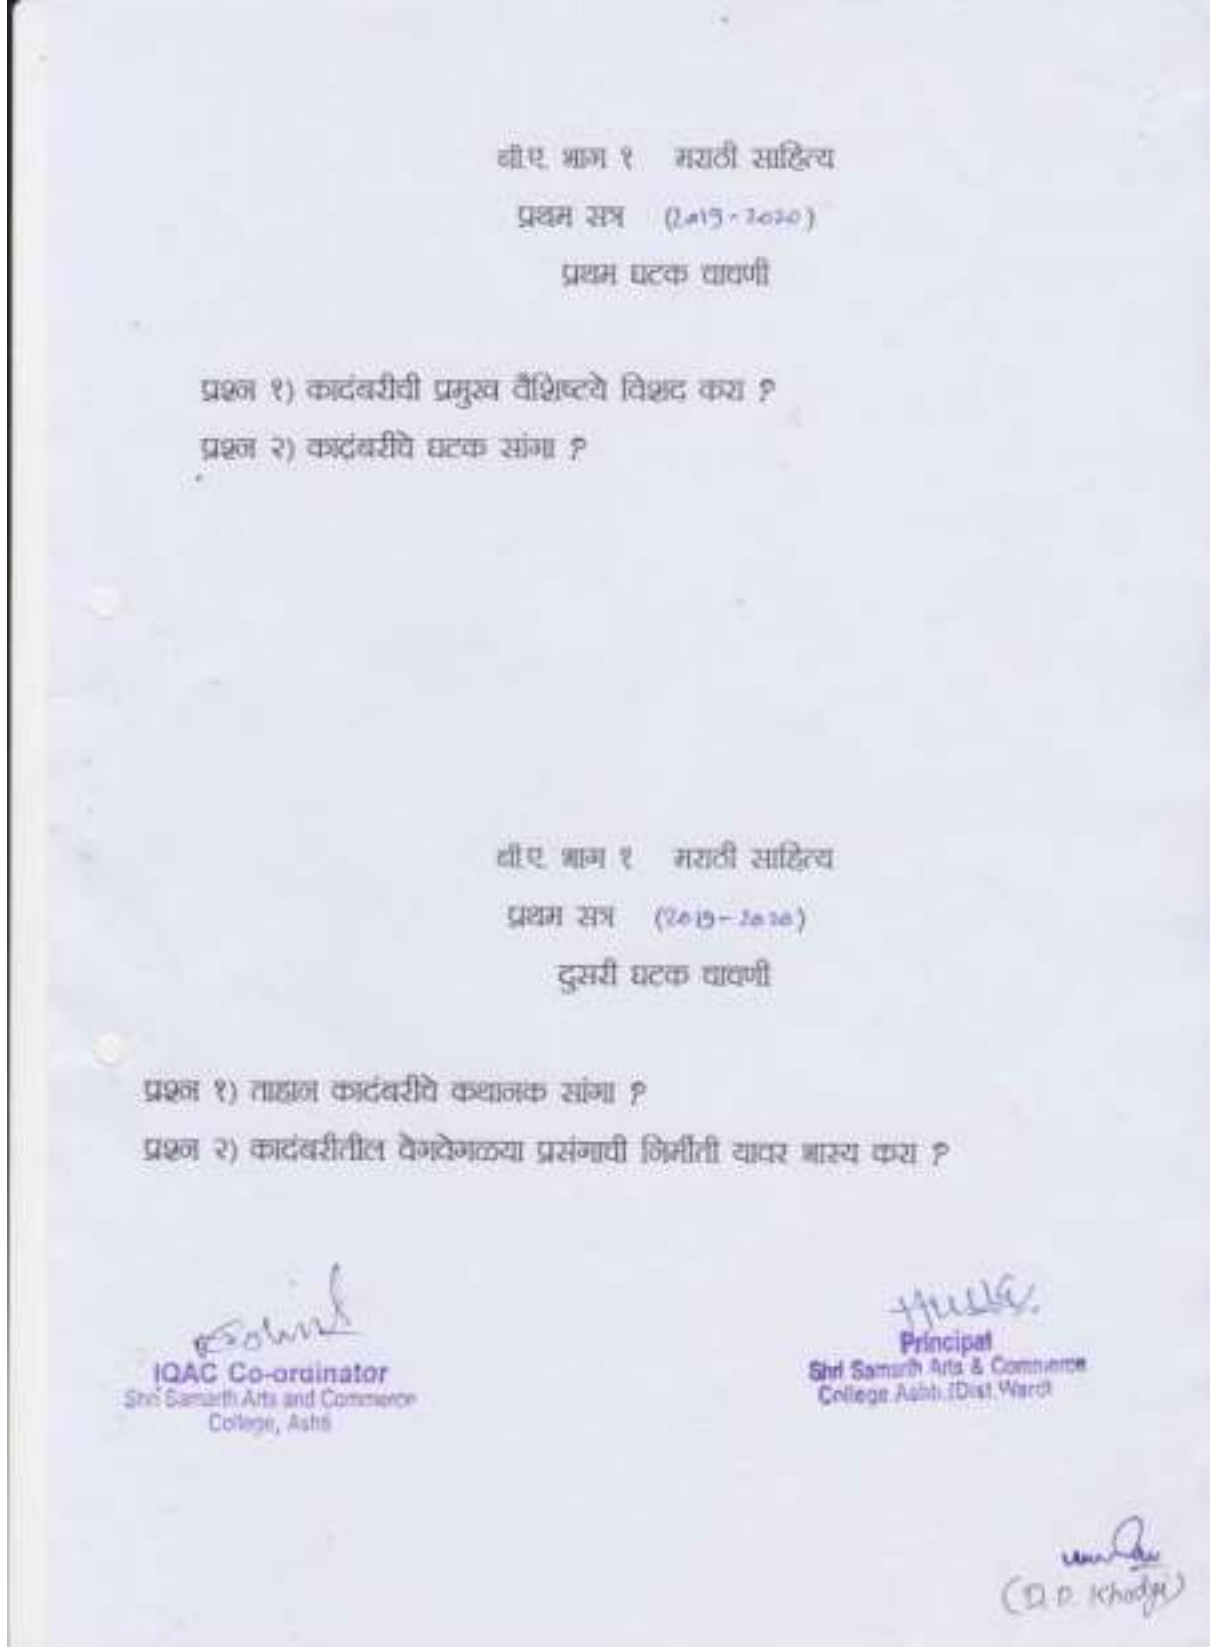 बी.ए. भाग १ मराठी साहित्य
प्रथम सत्र (2019-2020)
प्रथम घटक चाचणी
प्रश्न १) कादंबरीची प्रमुख वैशिष्टये विशद करा ?
प्रश्न २) कादंबरीचे घटक सांगा ?
बी.ए. भाग १ मराठी साहित्य
प्रथम सत्र (2019-2020)
दुसरी घटक चाचणी
प्रश्न १) ताहान कादंबरीचे कथानक सांगा ?
प्रश्न २) कादंबरीतील वेगवेगळया प्रसंगाची निर्मीती यावर भास्य करा ?
IQAC Co-ordinator
Shri Samarth Arts and Commerce
College, Ashti
Principal
Shri Samarth Arts & Commerce
College Ashti (Dist.
(D.D. Khodge)